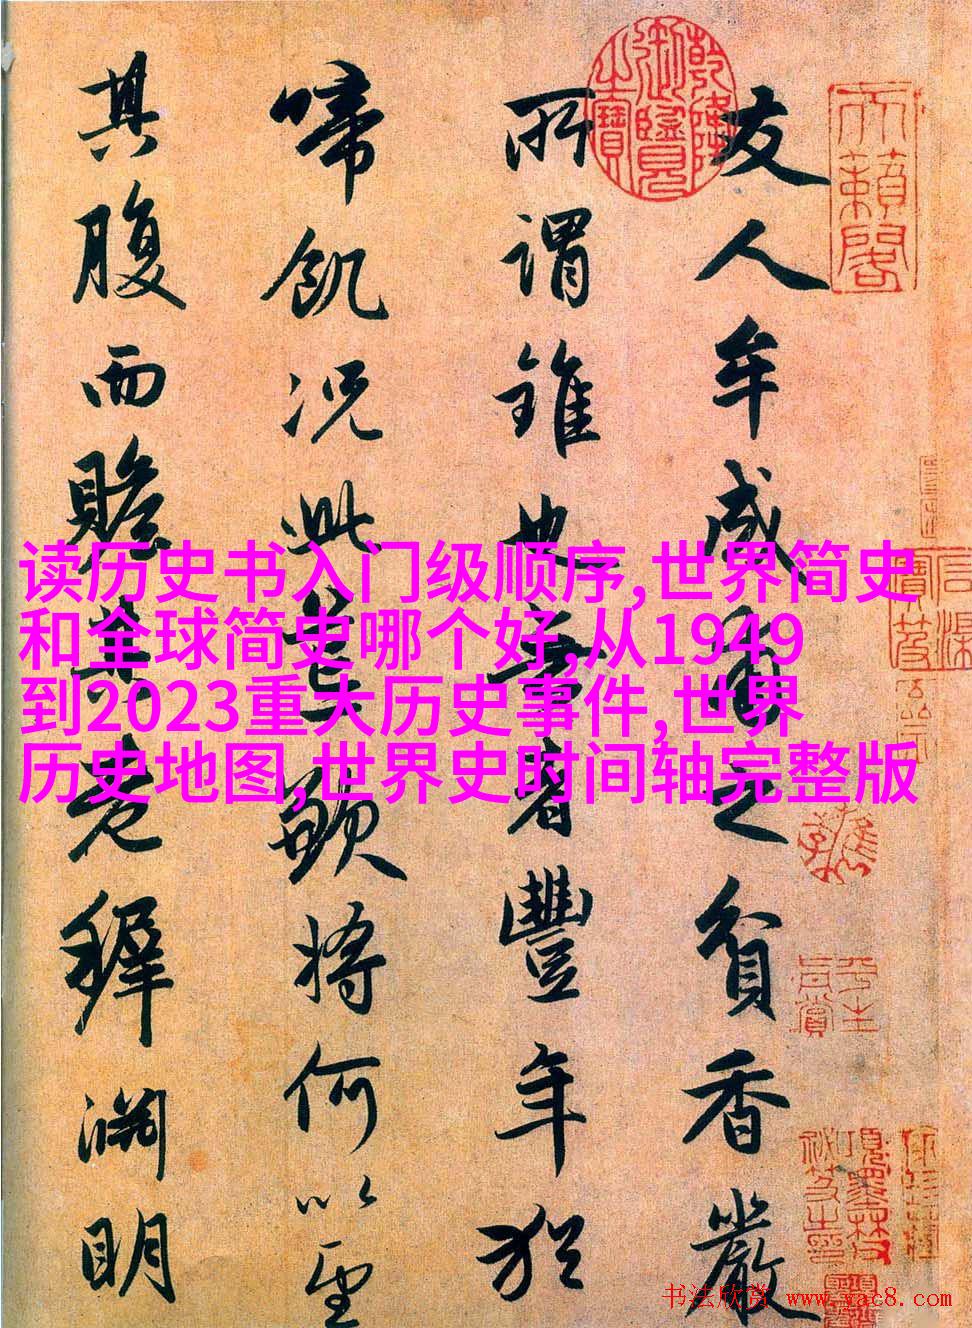 友人牟成甫之貧香嚴
所謂錐也無者豐年猶
啼飢況此荒歉將何以
其腹而贍其老穉淵明
乾隆御覽之寶
天籟閣
读历史书入门级顺序,世界简史
和全球简史哪个好,从1949
到2023重大历史事件,世界
历史地图,世界史时间轴完整版
书法欣赏 www.yac8.com